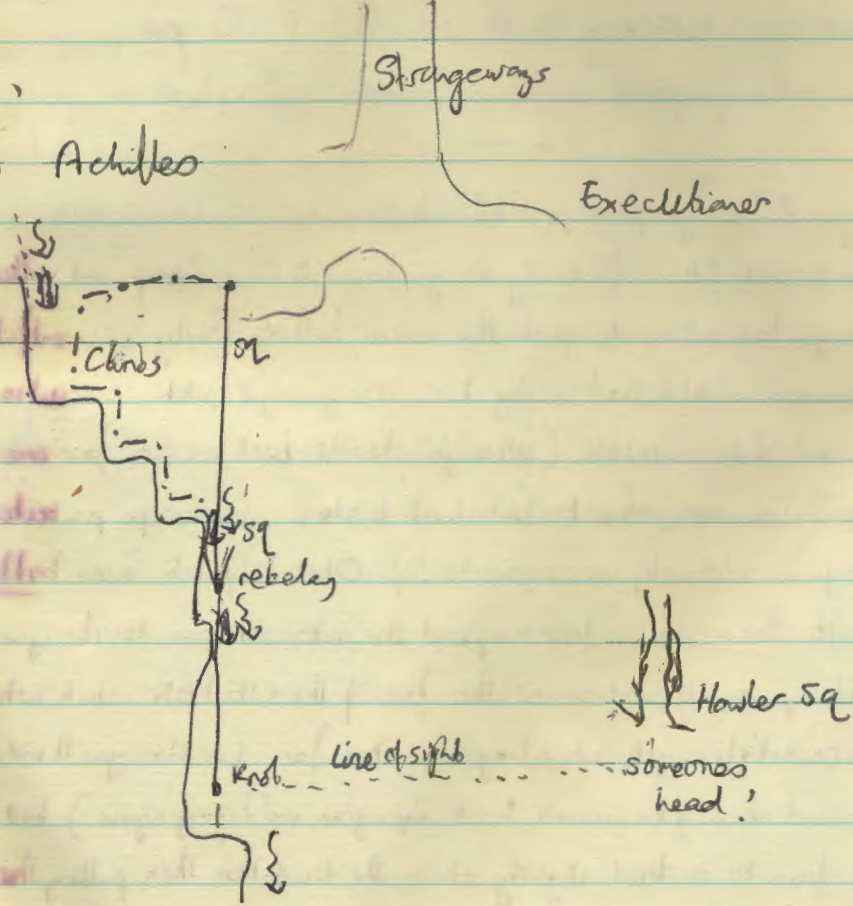 Strangeways
Achilles
Executioner
sq
Climbs
sq
rebelay
Howler Sq
Knot
line of sight
someones
head!